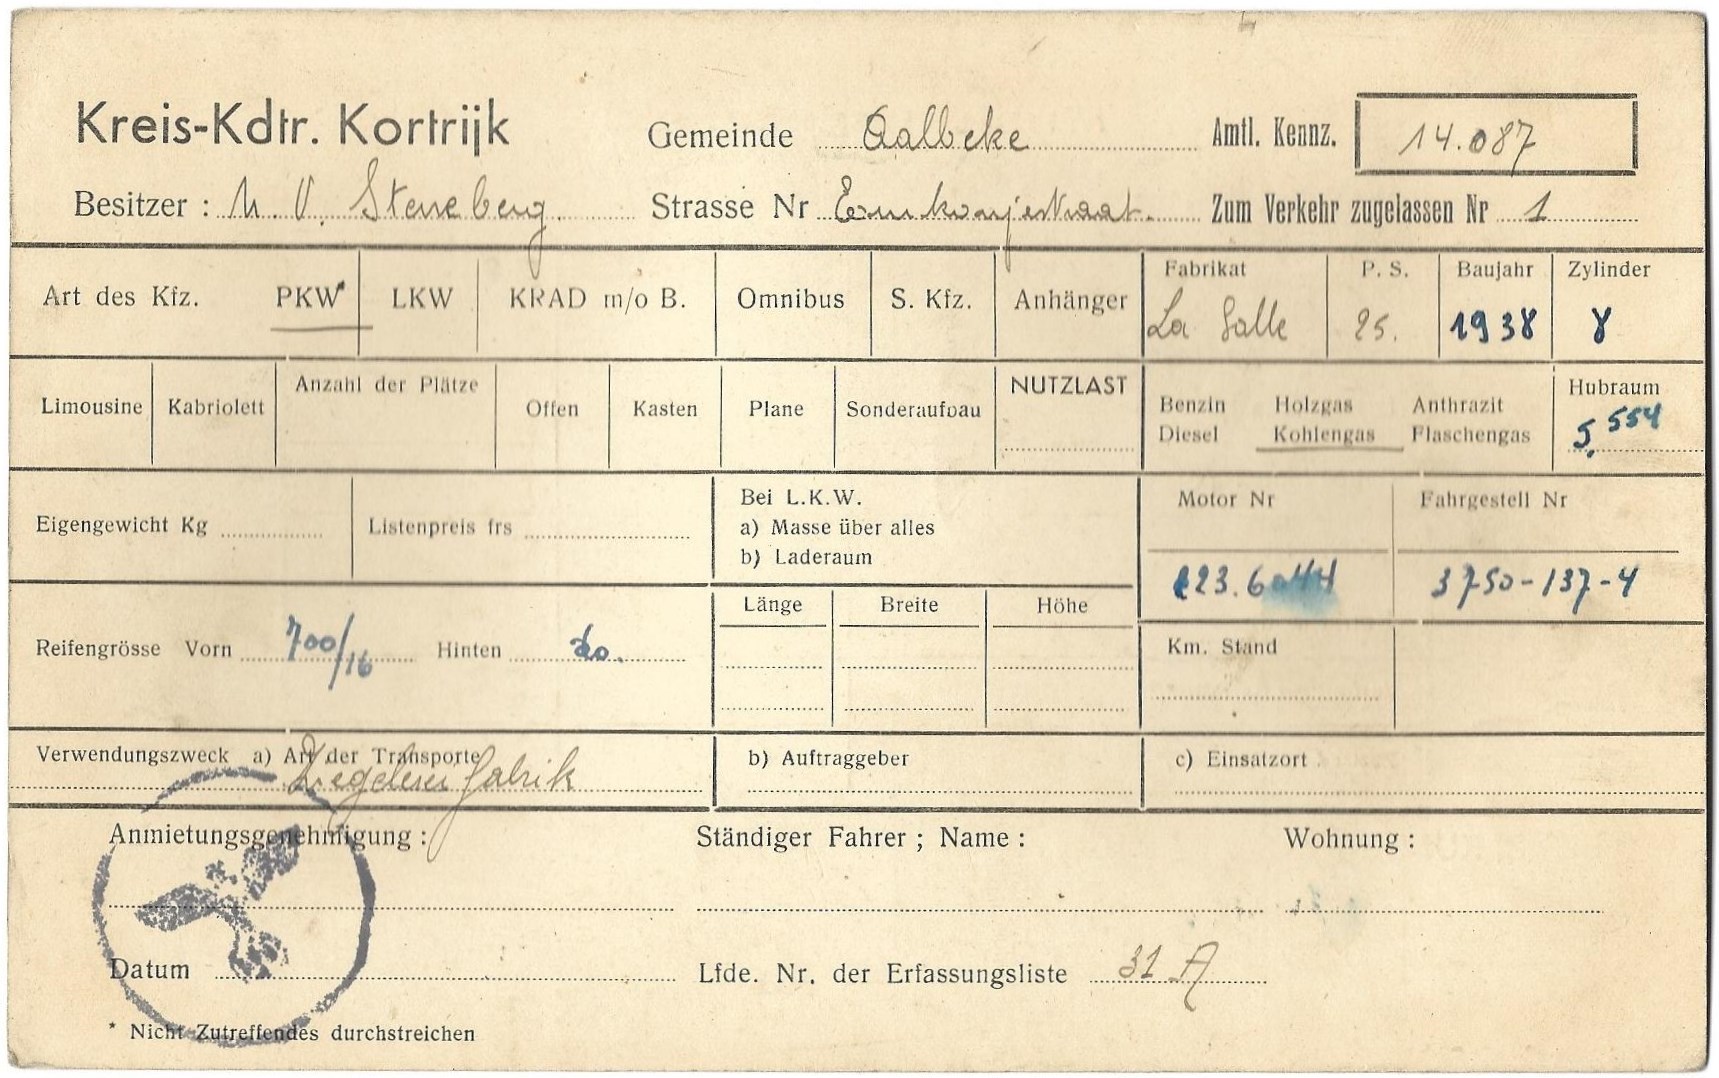 Kreis-Kdtr. Kortrijk Gemeinde Aalbeke Amtl. Kennz. 14.087
Besitzer : N. V. Sterreberg. Strasse Nr Zum Verkehr zugelassen Nr 1
Art des Kfz. PKW* LKW KRAD m/o B. Omnibus S. Kfz. Anhänger Fabrikat La Salle P. S. 25. Baujahr 1938 Zylinder 8
Limousine Kabriolett Anzahl der Plätze Offen Kasten Plane Sonderaufbau NUTZLAST Benzin Holzgas Anthrazit Hubraum
Diesel Kohlengas Flaschengas 5.554
Eigengewicht Kg Listenpreis frs Bei L.K.W. Motor Nr Fahrgestell Nr
a) Masse über alles
b) Laderaum
3750-137-4
Länge Breite Höhe
Reifengrösse Vorn 700/16 Hinten do. Km. Stand
Verwendungszweck a) Art der Transporte b) Auftraggeber c) Einsatzort
fabrik
Anmietungsgenehmigung : Ständiger Fahrer ; Name : Wohnung :
Datum Lfde. Nr. der Erfassungsliste 31 A
* Nicht Zutreffendes durchstreichen